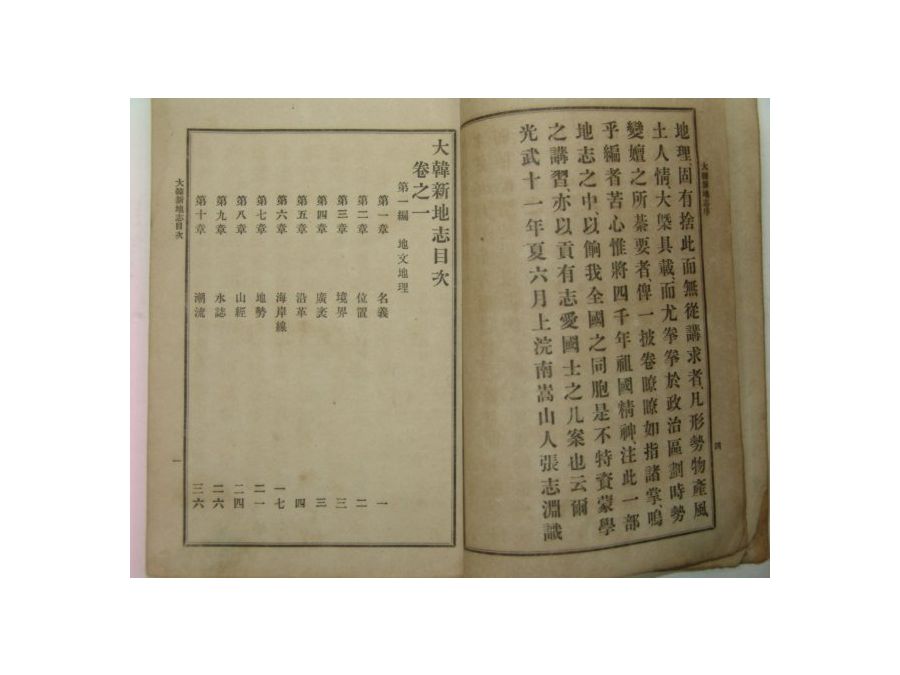 大韓新地志序
四
地理、固有捨此而無從講求者、凡形勢物產風
土人情、大槩具載、而尤拳拳於政治區劃時勢
變嬗之所綦要者俾一披卷瞭瞭如指諸掌、嗚
乎編者苦心惟將四千年祖國精神、注此一部
地志之中、以餉我全國之同胞是不特資蒙學
之講習、亦以貢有志愛國士之几案也云爾
光武十一年夏六月上浣南嵩山人張志淵識
大韓新地志目次
卷之一
第一編 地文地理
第一章 名義 一
第二章 位置 二
第三章 境界 三
第四章 廣袤 三
第五章 沿革 四
第六章 海岸線 一七
第七章 地勢 二一
第八章 山經 二四
第九章 水誌 二六
第十章 潮流 三六
大韓新地志目次
一